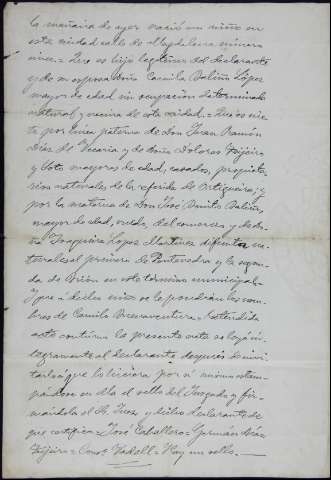 la mañana de ayer nació un niño en
esta ciudad calle de Magdalena número
once.= Que es hijo legítimo del declarante
y de su esposa doña Camila Baliño López
mayor de edad sin ocupación determinada
natural y vecina de esta ciudad.= Que es nie-
to por línea paterna de Don Juan Ramón
Díaz de y de doña Dolores Teijeiro
y mayores de edad, casados, propieta-
rios naturales de la referida de Ortigueira; y
por la materna de Don José Benito Baliño,
mayor de edad, viudo, del comercio y de do-
ña Joaquina López Martínez difunta na-
turales el primero de Pontevedra y la segun-
da de en este término municipal.-
Y que á dicho niño se le pondrán los nom-
bres de Camilo Buenaventura.= Extendida
acto contínuo la presente acta se leyó ín-
tegramente al declarante después de invi-
tarle á que lo hiciera por sí mismo estam-
pándose en ella el sello del Juzgado y fir-
mándola el Sr. Juez y dicho declarante de
que certifico.= José Caballero.= Germán Díaz
Teijeiro.= Hay un sello.